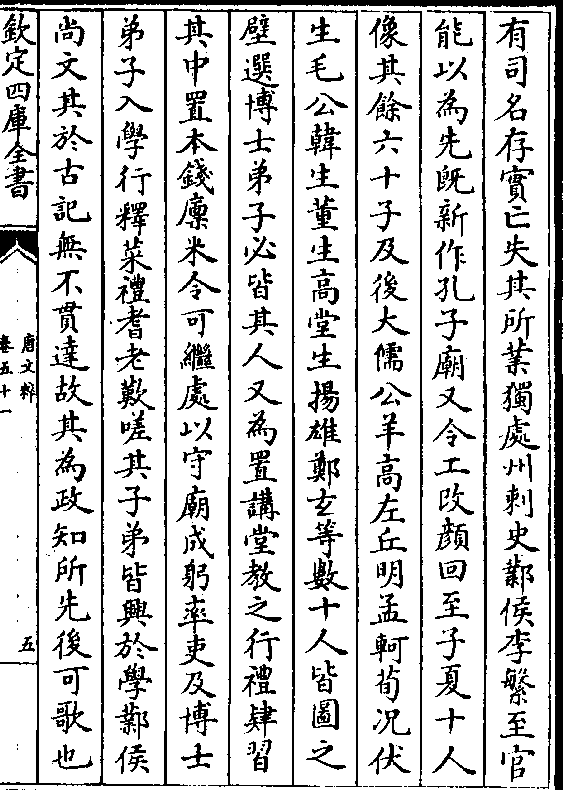 有司名存實亡失其所業獨處州刺史鄴侯李繁至官
能以為先旣新作孔子廟又令工改顔回至子夏十人
像其餘六十子及後大儒公羊高左丘明孟軻荀況伏
生毛公韓生董生高堂生揚雄鄭玄等數十人皆圖之
壁選博士弟子必皆其人又為置講堂教之行禮肄習
其中置本錢廩米令可繼處以守廟成躬率吏及博士
弟子入學行釋菜禮耆老歎嗟其子弟皆興於學鄴侯
尚文其於古記無不貫達故其為政知所先後可歌也
欽定四庫全書
唐文粹
卷五十一
五